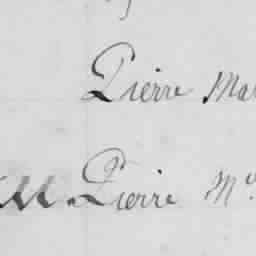 Pierre Mar
M. Pierre Mr